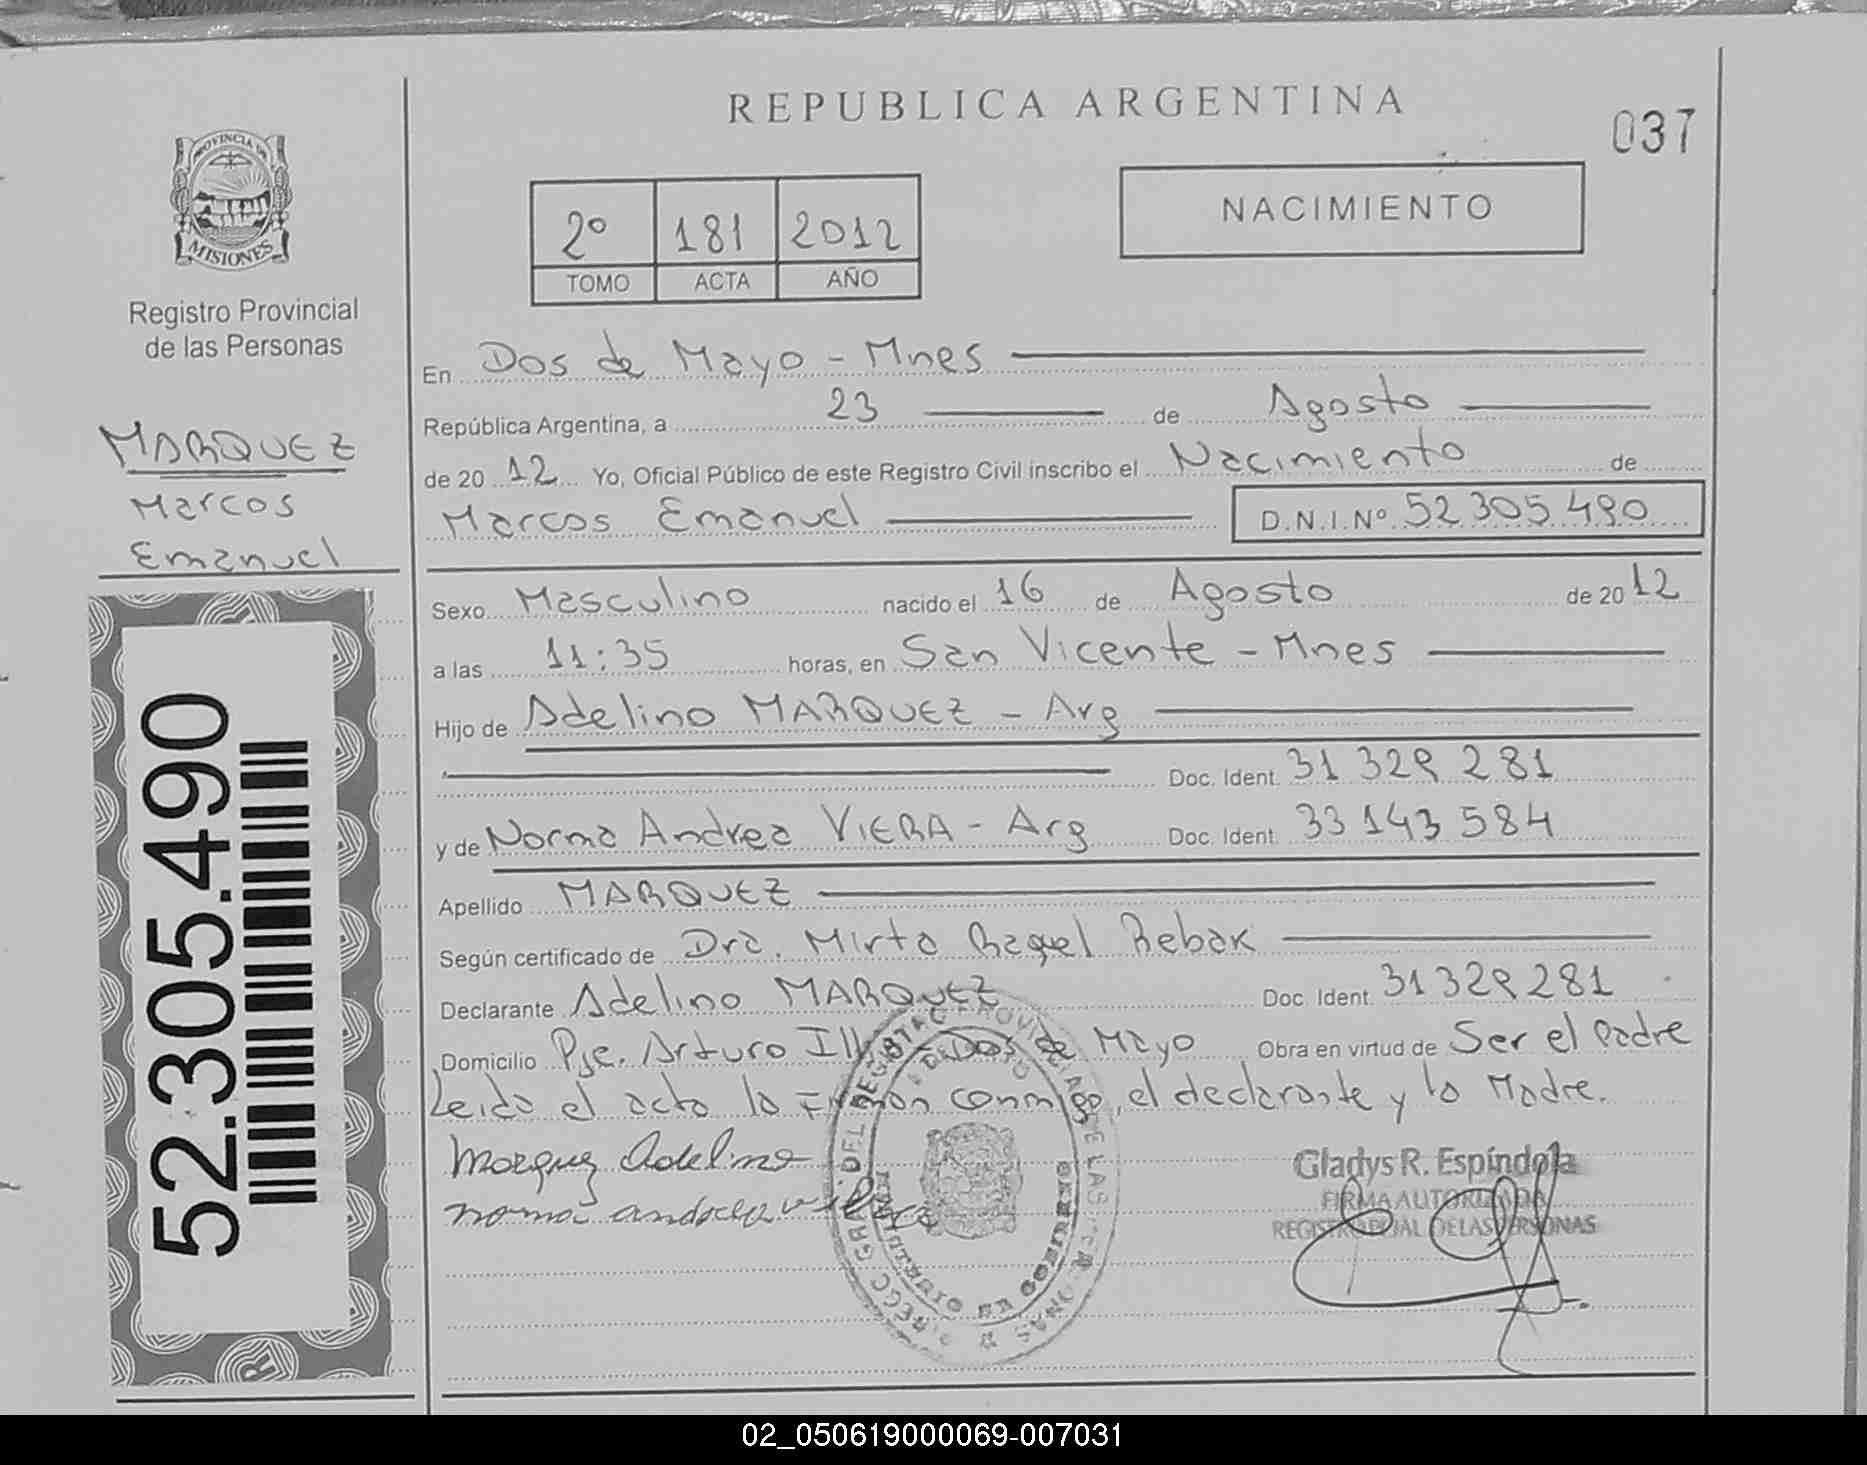 REPUBLICA ARGENTINA
037
PROVINCIA DE
MISIONES
Registro Provincial
de las Personas
NACIMIENTO
2º 181 2012
TOMO ACTA AÑO
MARQUEZ
Marcos
Emanuel
52.305.490
En Dos de Mayo - Mnes
República Argentina, a 23 de Agosto
de 20 12 Yo, Oficial Público de este Registro Civil inscribo el Nacimiento de
Marcos Emanuel D.N.I.Nº 52 305 490
Sexo Masculino nacido el 16 de Agosto de 20 12
a las 11:35 horas, en San Vicente - Mnes
Hijo de Adelino MARQUEZ - Arg
Doc. Ident. 31 329 281
y de Norma Andrea VIERA - Arg Doc. Ident. 33 143 584
Apellido MARQUEZ
Según certificado de Dra. Mirta Raquel Rebak
Declarante Adelino MARQUEZ Doc. Ident. 31 329 281
Domicilio Pje. Arturo Dos de Mayo Obra en virtud de Ser el Padre
Leida el acta la Firman conmigo, el declarante y la Madre.
Marquez Adelino
norma andrea
Gladys R. Espíndola
FIRMA AUTORIZADA
REGISTRO PCIAL DE LAS PERSONAS
02_050619000069-007031